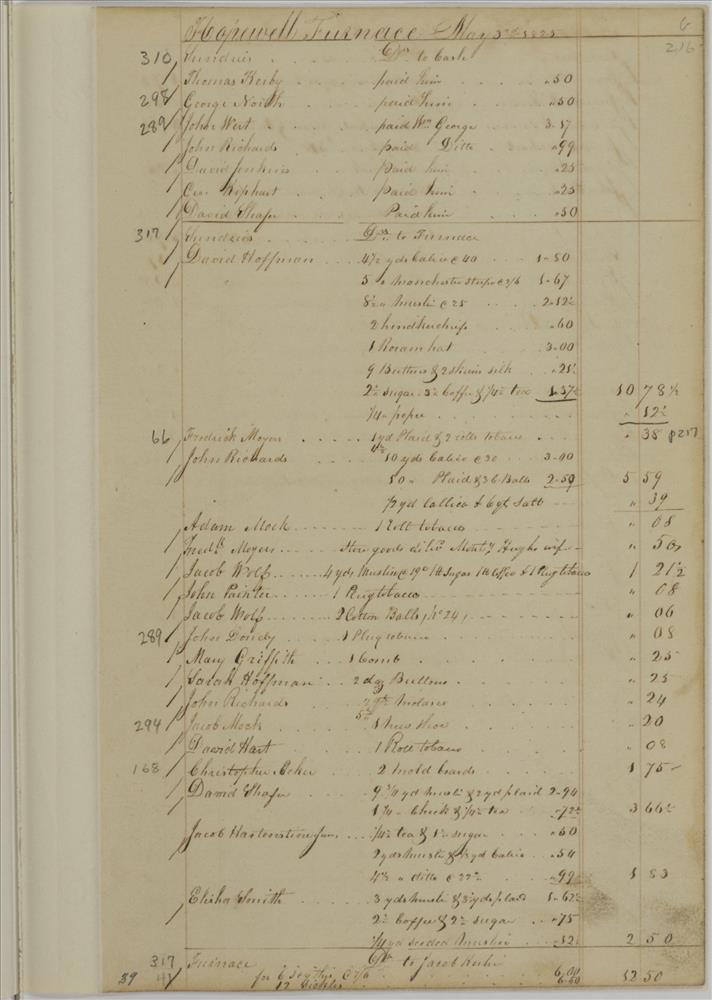 6
Hopewell Furnace May 3rd 1825
216
310 Sundries Drs to Cash
Thomas Kerby paid him " 50
298 George North paid him " 50
289 John Wert paid Wm George 3-17
John Richards paid Ditto " 99
David Jenkins paid him " 25
Geo Kephart paid him " 25
David Shafer Paid him " 50
317 Sundries Drs to Furnace
David Hoffman 4½ yds Calico @ 40 1-80
5 " Manchester Stripe @ 2/6 1-67
8½ " Muslin @ 25 2-12½
2 handkerchiefs " 60
1 Roram hat 3-00
9 Buttons & 2 skains silk " 21½
2 lb sugar 3 lb Coffee & ¼ lb tea 1.37½ 10 78½
¼ " " 12½
66 Fredrick Moyers 1 yd Plaid & 2 rolls tobacco " 38 p217
John Richards 10 yds Calico @ 30 3-00
50 " Plaid & 3 Balls 2-59 5 59
½ yd Callico & 6 qt Salt " 39
Adam Mock 1 Roll tobacco " 08
Fredk Moyers Store goods dilvd Montgy Hughs wife " 50
Jacob Wolf 4 yds Muslin @ 19 1 lb Sugar 1 lb Coffee & 1 Plug tobacco 1 21½
John Painter 1 Plug tobacco " 08
Jacob Wolf 2 Cotton Balls, No 24, " 06
289 John Doudy 1 Plug tobacco " 08
Mary Griffith 1 Comb " 25
Sarah Hoffman 2 doz Buttons " 25
John Richards 2 qts Molasses " 24
294 Jacob Mock 1 " 20
David Hart 1 Roll tobacco " 08
168 Christopher Acker 2 mold boards 1 75
David Shafer 9 ¾ yd Muslin & 2 yd plaid 2-94
1 ¼ " Check & ¼ lb tea " 72½ 3 66½
Jacob Hartenstine Junr ¼ lb tea & 1 lb sugar " 50
2 yds Muslin & ½ yd Calico " 54
4½ " ditto @ 22 " 99 1 83
Elisha Smith 3 yds Muslin & 3 yds plaid 1-62½
2 lb Coffee & 2 lb sugar " 75
¼ yd seeded Muslin " 12½ 2 50
317 Furnace Dr to Jacob
39 41 for 6 Scythes @ 7/6 6.00
12 Sickles 6.50 12 50